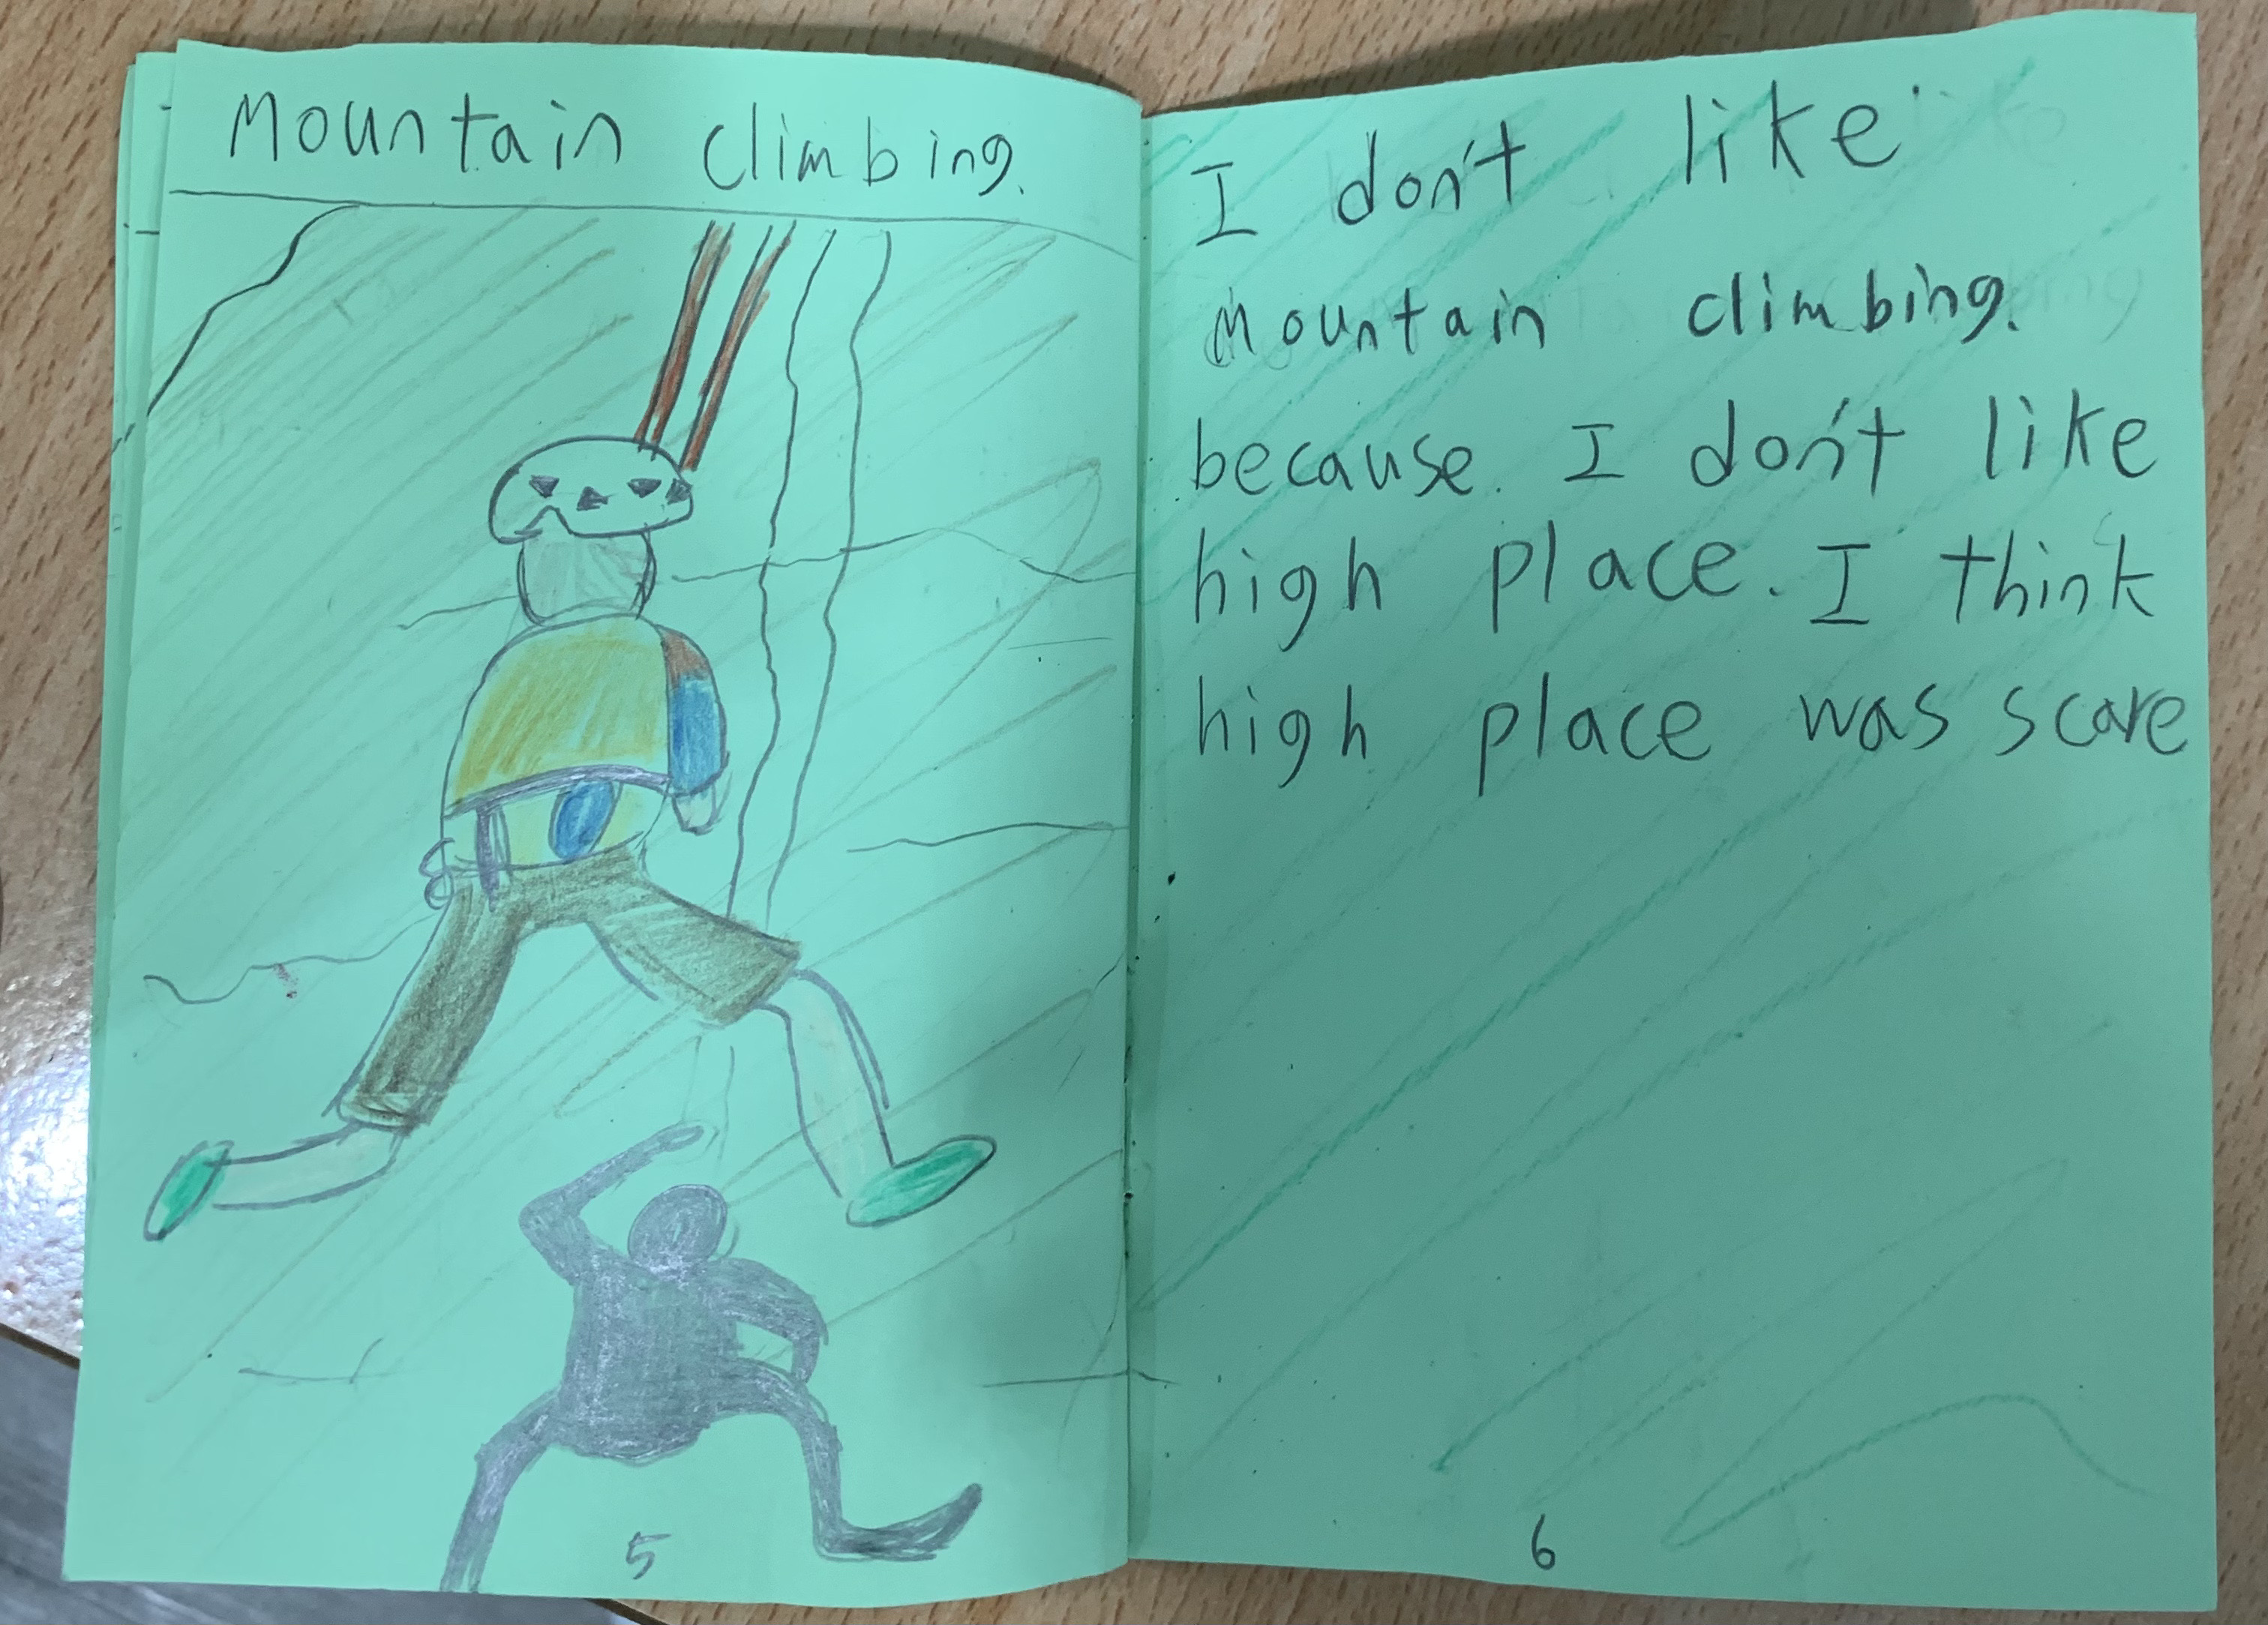 Mountain climbing.
5
I don't like
mountain climbing.
because. I don't like
high place. I think
high place was scare
6